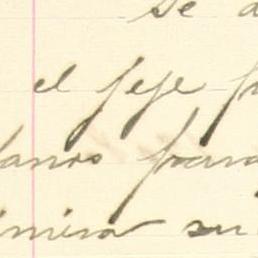 se a
el jefe f
lanos para
imira su